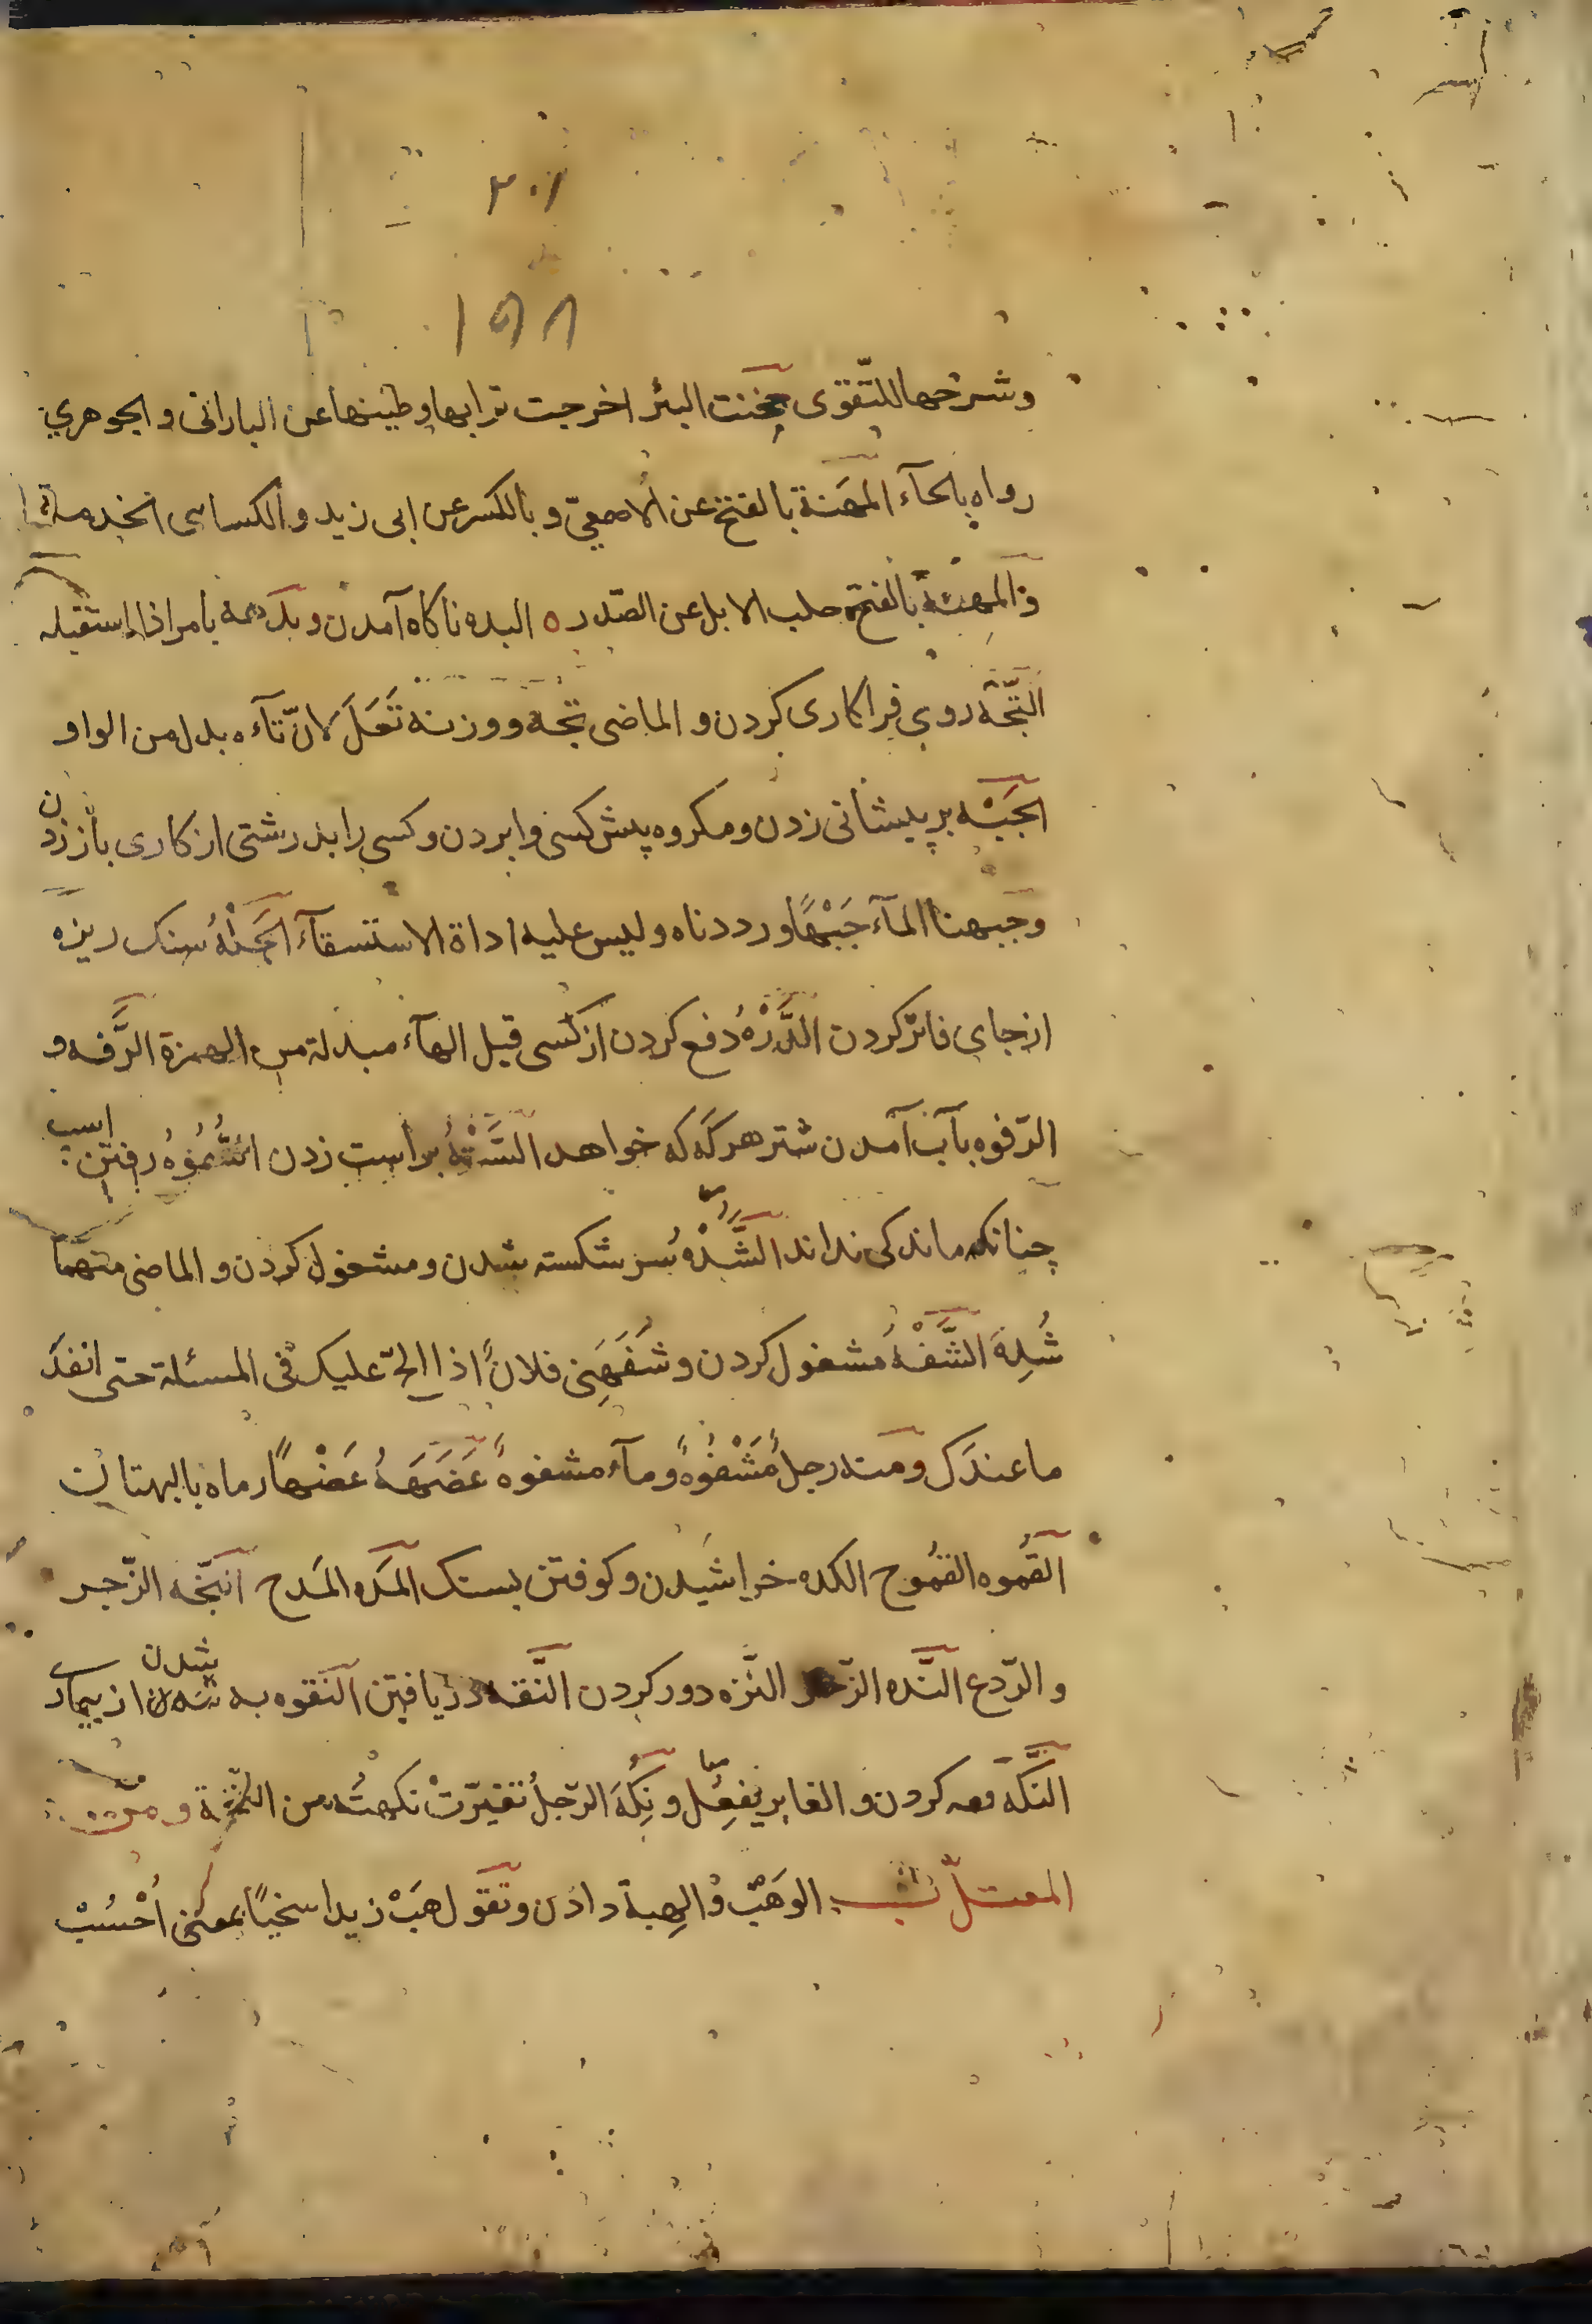 ۲۰۱
۱۹۸
وشرخها للتقوى مخنت البئر اخرجت ترابها وطينها عن البارانى والجوهري
رواه بالحآء المَهنة بالفتح عن الأصمعيّ وبالكسر عن ابى زيد والكسائى الخدمة
والمِهْنَة بالفتح حلب الابل عن الصّدر ه البده ناكاه آمدن وبدهه بامر اذا استقبله
التّجْه روي فرا كارى كردن والماضى تجه ووزنه تَعَلَ لانّ تآءه بدل من الواو
الجَبْه بر پيشانى زدن ومكروه پيش كسى وا بردن وكسى را بدرشتى از كارى باز زدن
وجبهنا المآء جَبْهًا وردناه وليس عليه اداة الاستسقآء الجَلْهُ سنك ريزه
از جاى فاتر كردن الدَّرْهُ دفع كردن از كسى قيل الهآء مبدلة من الهمزة الرَّفه و
الرّفوه بآب آمدن شتر هر كه كه خواهد السَّتْهُ بر است زدن السُّمُوْهُ رفتن اسب
چنانكه ماندكى نداند الشَّدْهُ سر شكسته شدن ومشغول كردن والماضى منهما
شُدِهَ الشَّفْهُ مشغول كردن وشَفَهَنى فلانٌ اذا الحّ عليك فى المسئلة حتى انفدَ
ما عندَك ومنه رجلٌ مَشْفُوْهٌ ومآء مشفوهٌ عَضَهَهُ عَضْهًا رماه بالبهتان
القُمُوه القُمُوح الكده خراشيدن وكوفتن بسنك المَدَه المَدح النّجه الزّجر
والرّدع النَّده الزّجر النَّزه دور كردن النَّقه دريافتن النقوه به شدن از بيمارى
النَّكَه كردن والغابر يفعِل ونَكِهَ الرّجلُ تغيّرتْ نكهتُه من التّخمة و
المعتلّ ب الوَهْبُ والهِبة دادن وتقول هَبْ زيدا سخيًا بمعنى اُحْسُبْ